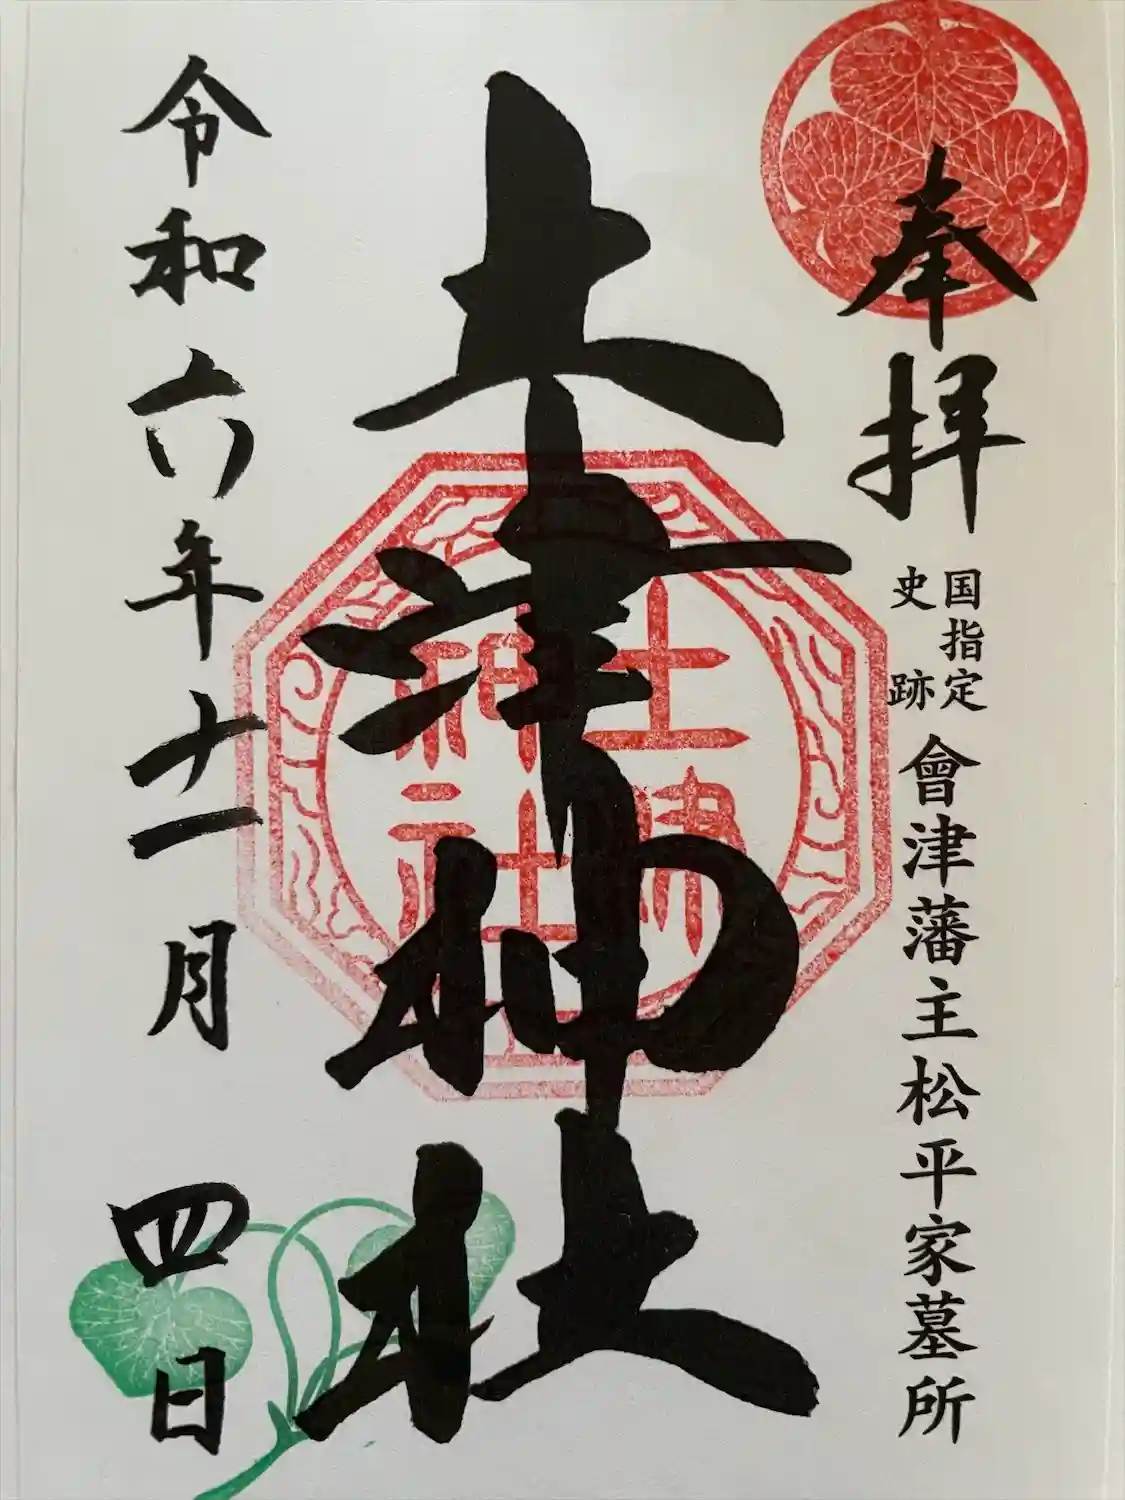 奉拝
国指定
史跡
會津藩主松平家墓所
土津神社
土津
神社
令和六年十一月四日